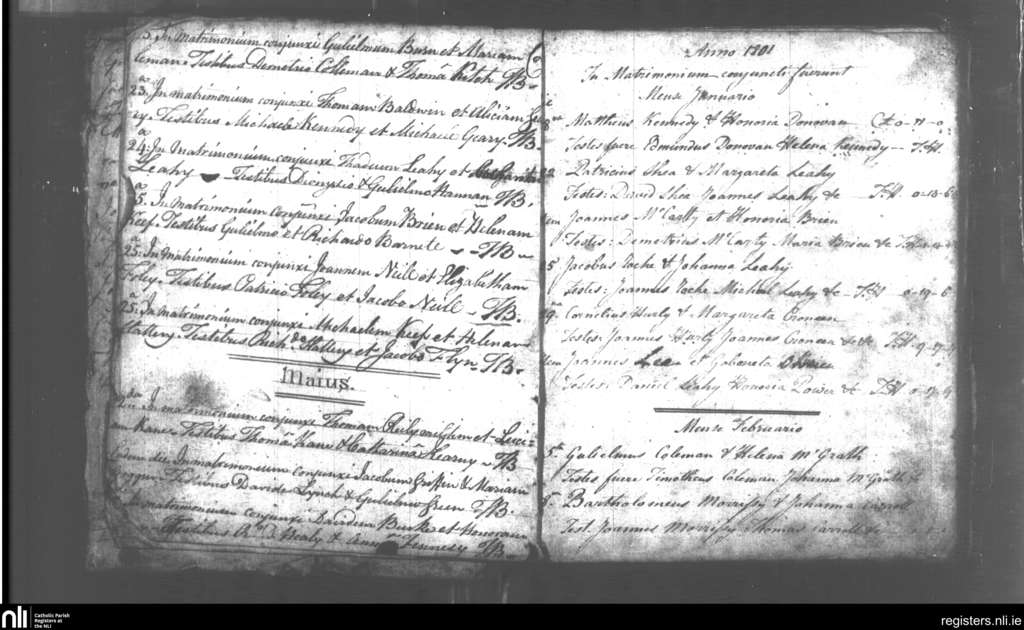 3. In Matrimonium conjunxi Gulielmum Burn et Mariam
leman. Testibus Demetrio Colleman & Thomâ Keteh TB.
23. In matrimonium conjunxi Thomam Baldwin et Aliciam
ry. Testibus Michaele Kennedy et Michaele Geary TB.
24. In Matrimonium conjunxi Thadeum Leahy et
Leahy Testibus Dionysio & Gulielmo Hannan TB.
5. In matrimonium conjunxi Jacobum Brien et Helenam
Keef. Testibus Gulielmo et Richardo Barnete TB
25. In matrimonium conjunxi Joannem Neill et Elizabetham
Foley. Testibus Patricio Foley et Jacobo Neill TB.
25. In matrimonium conjunxi Michaelem Keef et Helenam
Slattery. Testibus Rich.do Slattery et Jacobo Flyn TB.
Maius.
In matrimonium conjunxi Thomam Reily et
Kane. Testibus Thomâ Kane & Catharina Kearny TB
Eodem die In matrimonium conjunxi Jacobum Griffen & Mariam
Testibus Davide Lynch & Gulielmo Green TB.
In matrimonium conjunxi Davidem Burke et Honoram
Testibus Healy & Anna Fennesy TB.
Anno 1801
In Matrimonium conjuncti fuerunt
Mense Januario
8 Mattheus Kennedy & Honoria Donovan
Testes fuere Edmundus Donovan Helena Kennedy T:H.
22 Patricius Shea & Margareta Leahy
Testes: David Shea Joannes Leahy &c T:H 0-18-6
Joannes McCarty et Honoria Brien
Testes: Demetrius McCarty Maria Brien &c
5 Jacobus Roche & Johanna Leahy
Testes: Joannes Roche Michael Leahy &c T:H 0-19-6
Cornelius Herly & Margareta Croneen
Testes: Joannes Herly Joannes Croneen &c T:H
Joannes Leen et
Testes: Daniel Leahy Honoria Power & T:H
Mense Februario
5 Gulielmus Coleman & Helena McGrath
Testes fuere Timotheus Coleman Johanna McGrath &
5 Bartholomeus Morrissy & Johanna Carrol
Test Joannes Morrissy Thomas Carrol &c
nli
Catholic Parish
Registers at
the NLI
registers.nli.ie